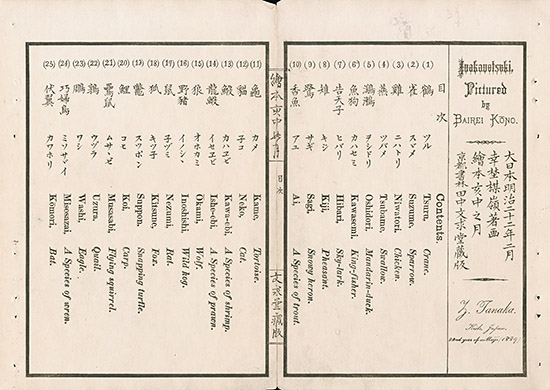 Inakanotsuki,
Pictured
by
BAIREI KŌNO.
大日本明治二十二年二月
幸埜楳嶺著画
繪本亥中之月
京都書林田中文求堂藏版
Z. Tanaka.
Kioto Japan.
22nd year of Meiji, 1889
目次
Contents.
(1) 鶴 ツル Tsuru, Crane.
(2) 雀 スヾメ Suzume, Sparrow.
(3) 雞 ニハトリ Niwatori, Chicken.
(4) 燕 ツバメ Tsubame, Swallow.
(5) ヲシドリ Oshidori, Mandarin-duck.
(6) 魚狗 カハセミ Kawasemi, King-fisher.
(7) 告天子 ヒバリ Hibari, Sky-lark.
(8) 雉 キジ Kiji, Pheasant.
(9) 鷺 サギ Sagi, Snowy heron.
(10) 香魚 アユ Ai, A Species of trout.
繪本亥中之月
目次
文求堂藏版
(11) 龜 カメ Kame, Tortoise.
(12) 猫 子コ Neko, Cat.
(13) 鰕 カハエビ Kawa-ebi, A Species of shrimp.
(14) 龍鰕 イセエビ Ishe-ebi, A Species of prawn.
(15) 狼 オホカミ Okami, Wolf.
(16) 野豬 イノシヽ Inoshishi, Wild hog.
(17) 鼠 子ヅミ Nezumi, Rat.
(18) 狐 キツ子 Kitsune, Fox.
(19) 鼈 スツポン Suppon, Snapping turtle.
(20) 鯉 コヒ Koi, Carp.
(21) 鼯鼠 ムサヽビ Musasabi, Flying squirrel.
(22) 鶉 ウヅラ Uzura, Quail.
(23) 鵰 ワシ Washi, Eagle.
(24) 巧婦鳥 ミソサヾイ Misosazai, A Species of wren.
(25) 伏翼 カウホリ Kōmori, Bat.